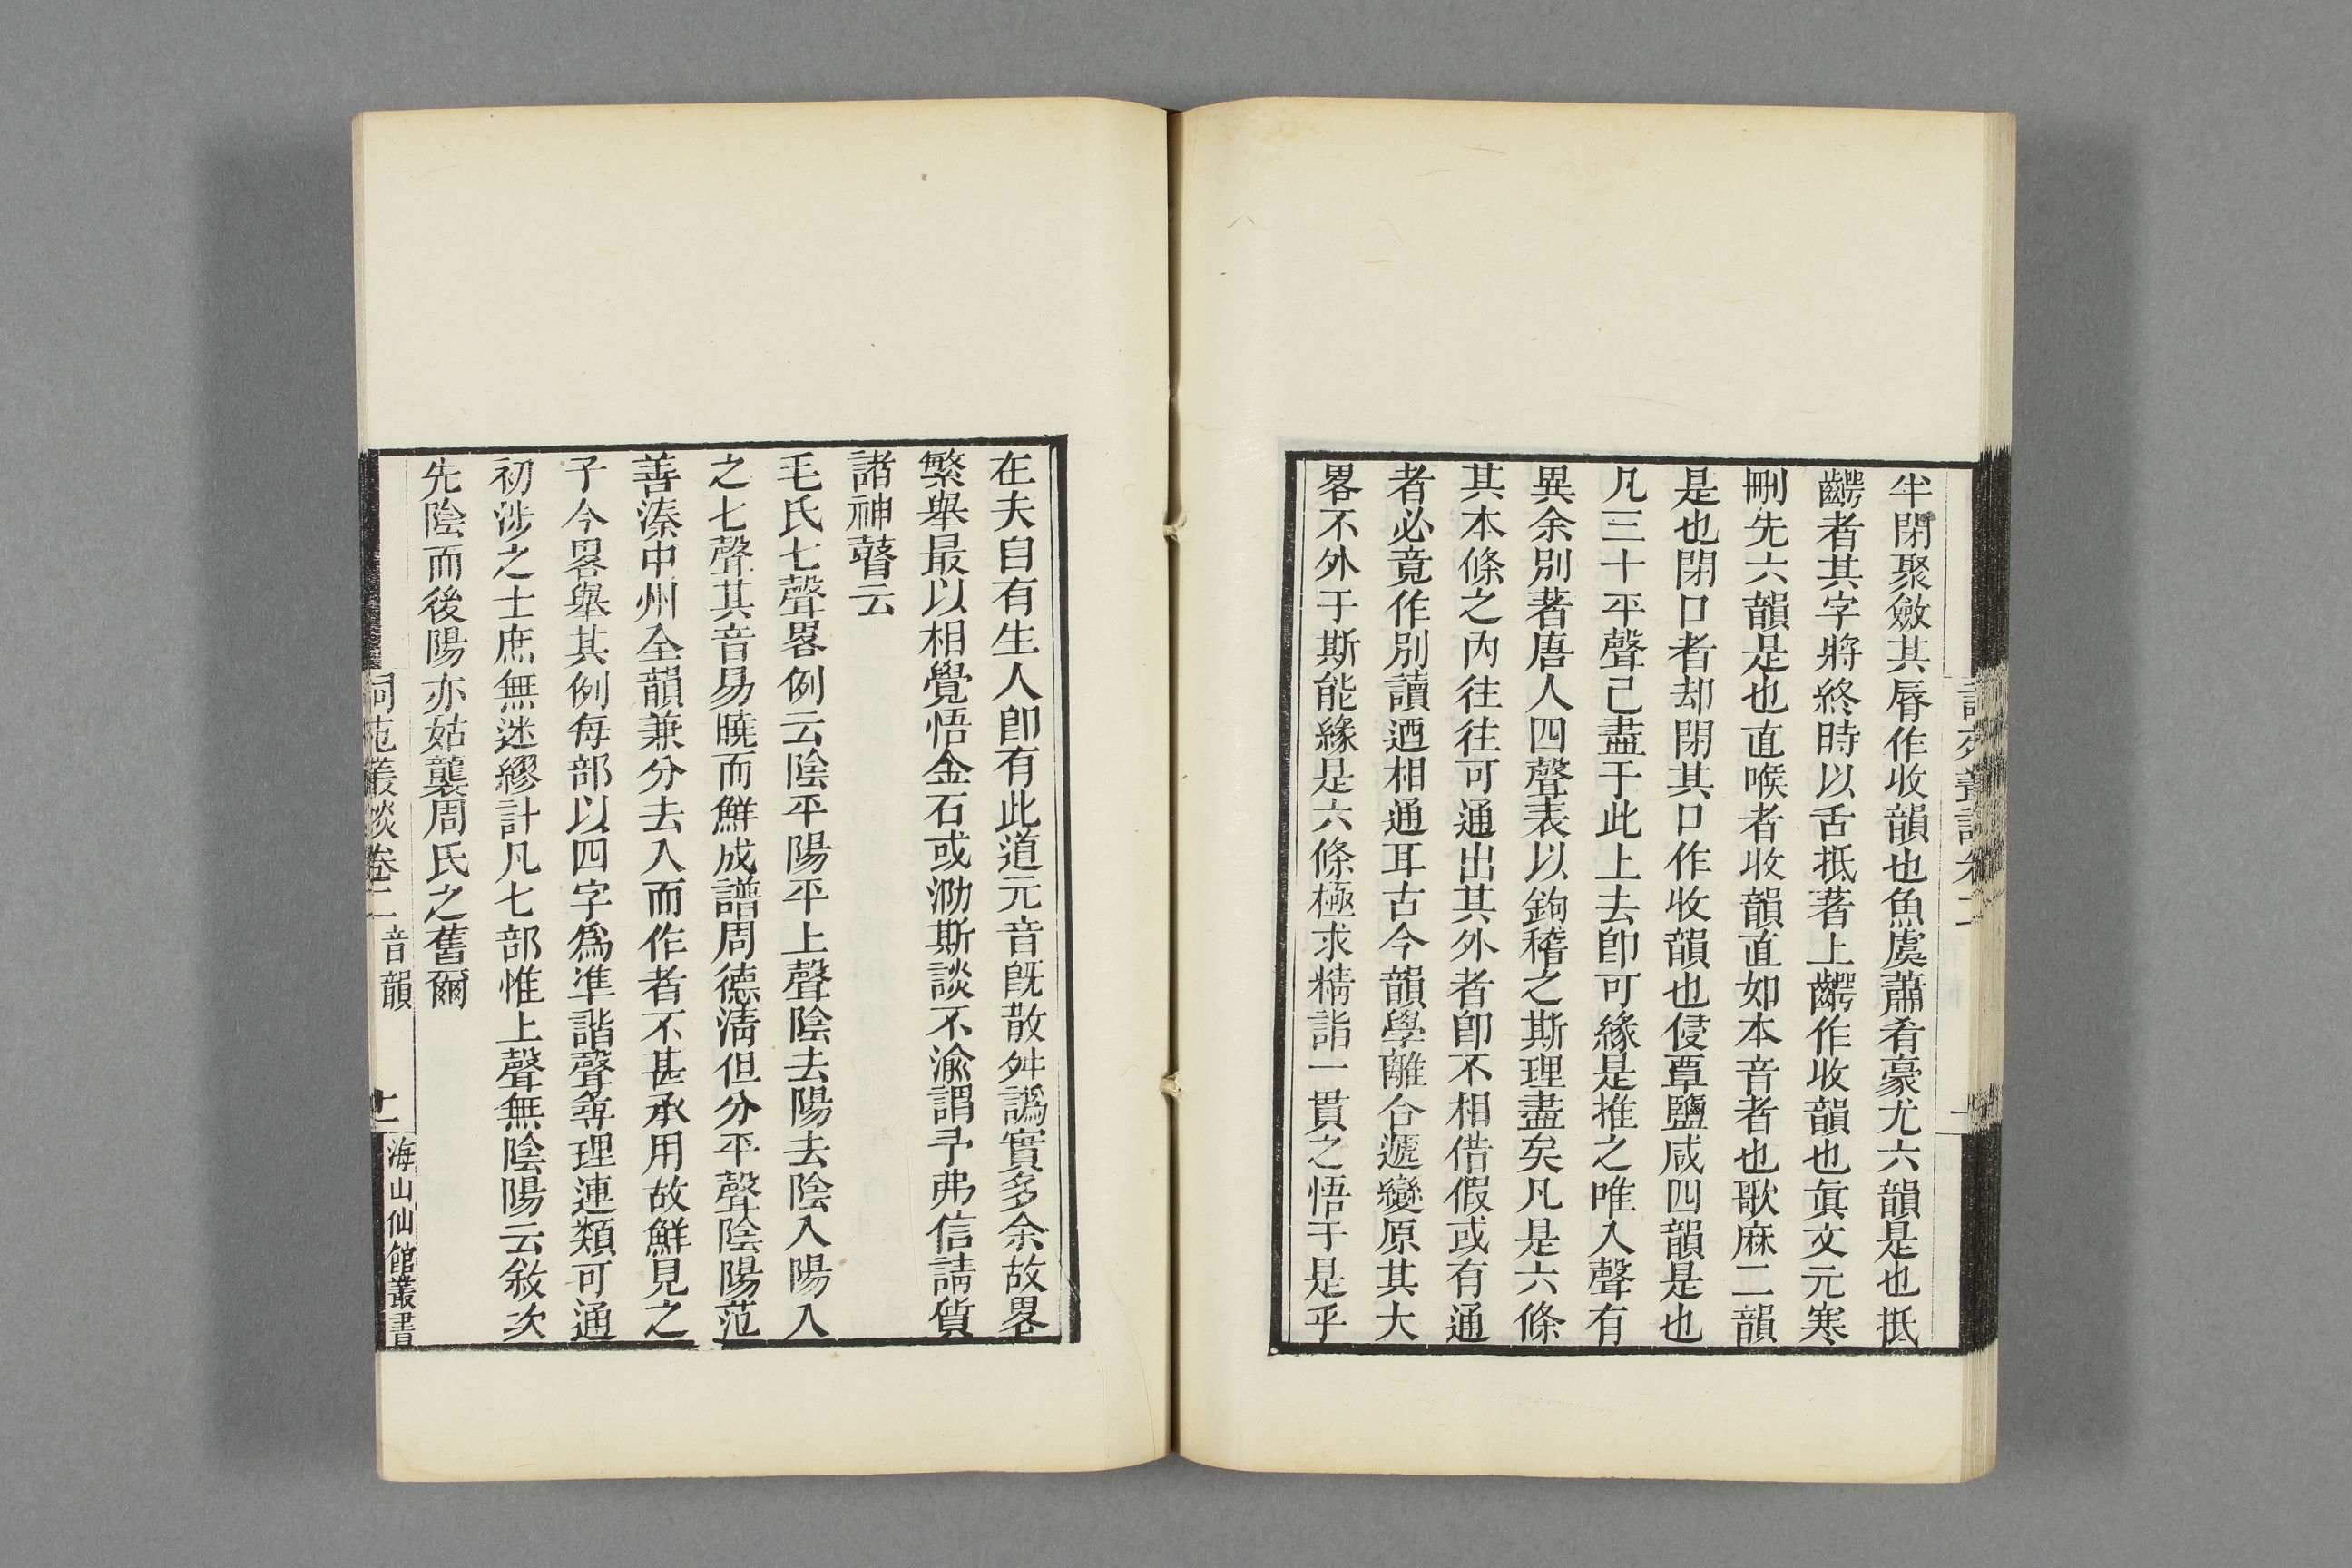 半閉聚斂其脣作收韻也魚虞蕭肴豪尤六韻是也抵
齶者其字將終時以舌抵著上齶作收韻也眞文元寒
刪先六韻是也直喉者收韻直如本音者也歌麻二韻
是也閉口者却閉其口作收韻也侵覃鹽咸四韻是也
凡三十平聲已盡于此上去卽可緣是推之唯入聲有
異余別著唐人四聲表以鉤稽之斯理盡矣凡是六條
其本條之內往往可通出其外者卽不相借假或有通
者必竟作別讀迺相通耳古今韻學離合遞變原其大
畧不外于斯能緣是六條極求精詣一貫之悟于是乎
在夫自有生人卽有此道元音旣散舛譌實多余故畧
繁舉最以相覺悟金石或泐斯談不渝謂予弗信請質
諸神瞽云
毛氏七聲畧例云陰平陽平上聲陰去陽去陰入陽入
之七聲其音易曉而鮮成譜周德淸但分平聲陰陽范
善溱中州全韻兼分去入而作者不甚承用故鮮見之
予今畧舉其例每部以四字爲準諧聲尋理連類可通
初涉之士庶無迷繆計凡七部惟上聲無陰陽云敘次
先陰而後陽亦姑襲周氏之舊爾
詞苑叢談卷二 音韻 十一 海山仙館叢書